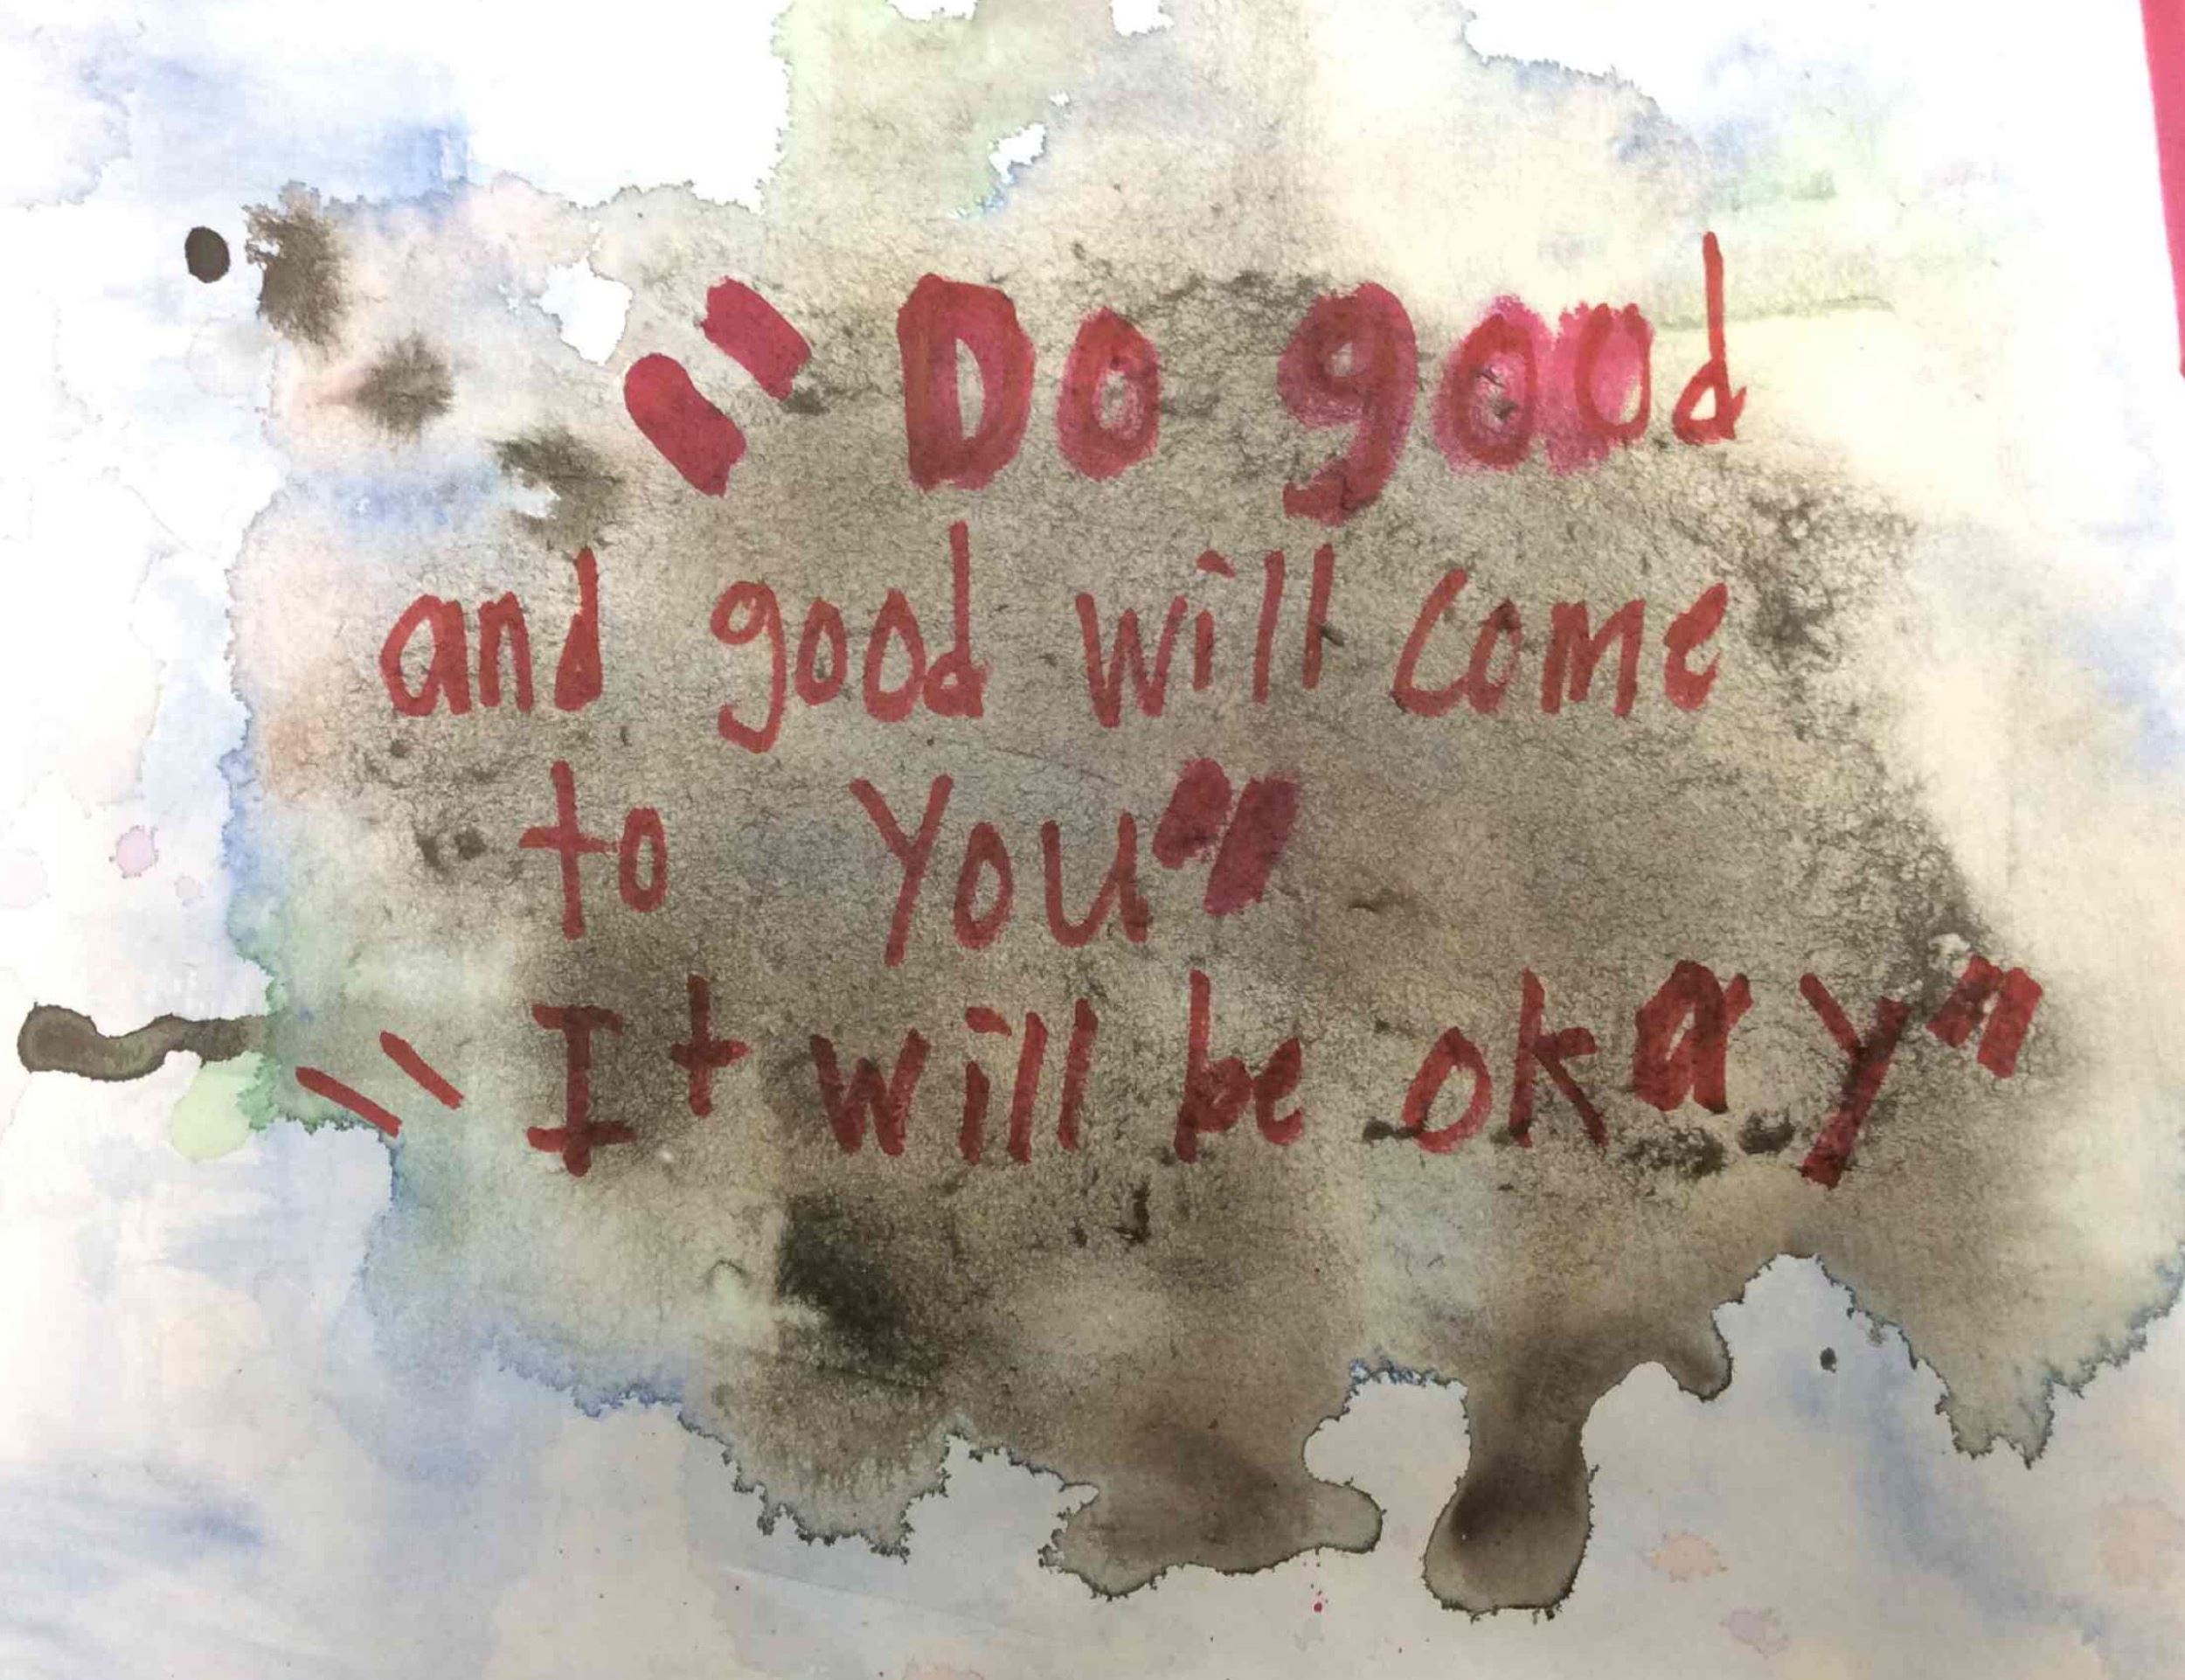 "Do good
and good will come
to You"
"It will be okay"